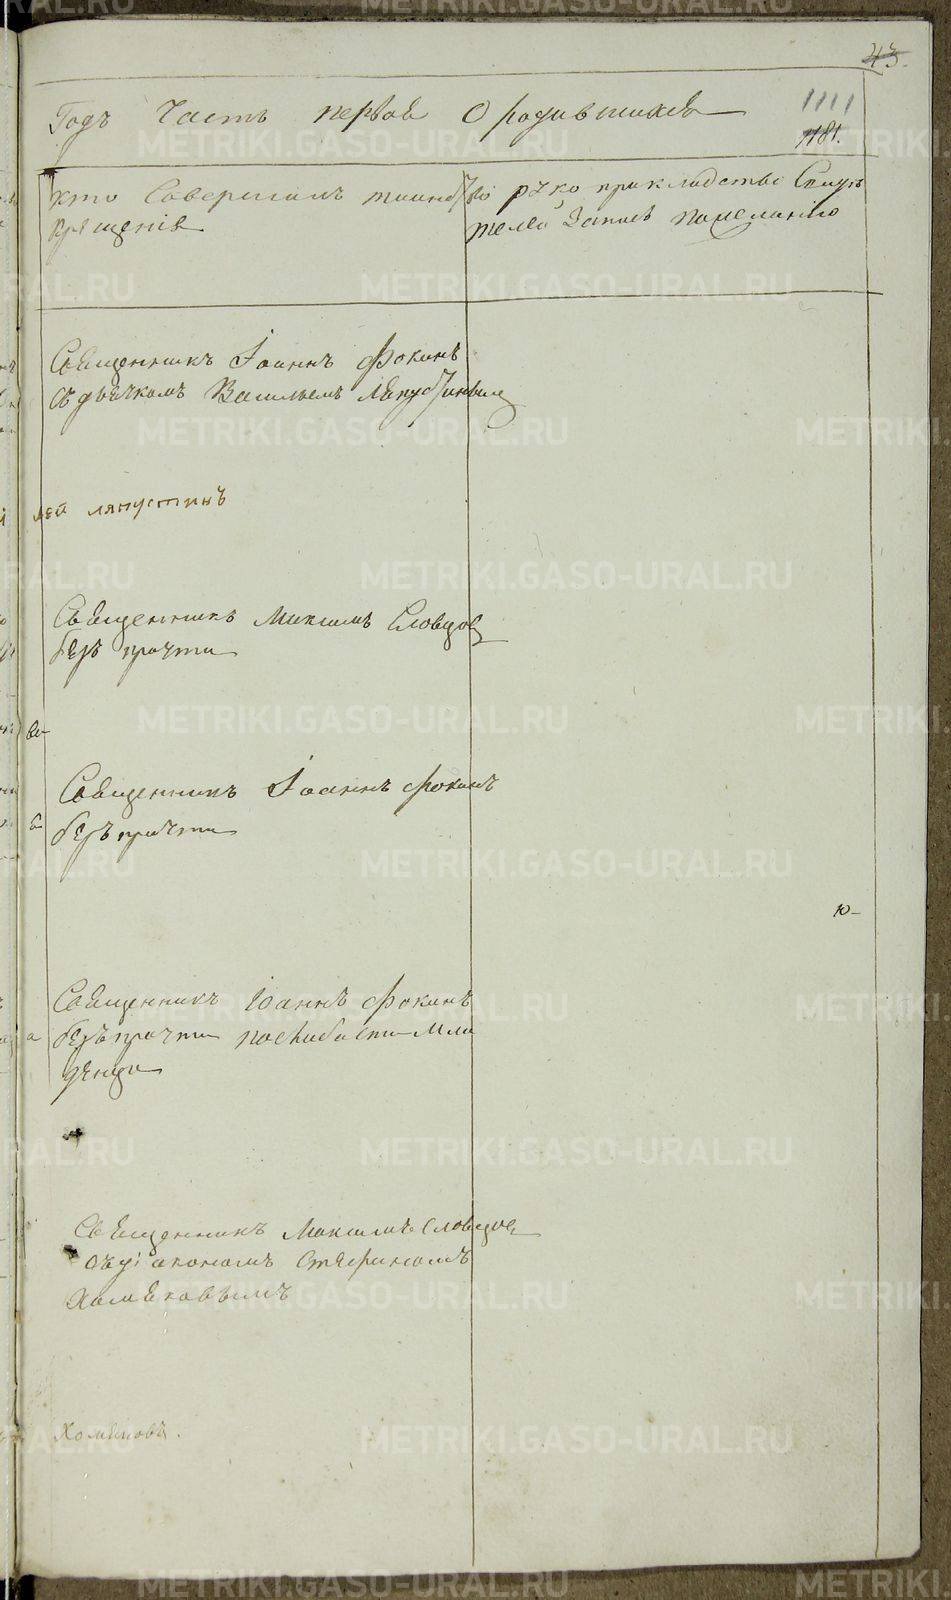 43.
Годъ Часть первая О родившихся
1111
1181.
кто Совершалъ таинство
крещенія
рукоприкладство Свидѣ
телей Записѣ пожеланію
Священникъ Іоаннъ Фокинъ
съ дьячкомъ Васильемъ Ляпустинымъ
лей ляпустинъ
Священникъ Максимъ Словцов
безъ причта
во-
Священникъ Іоаннъ Фокинъ
безъ причта
ю-
Священникъ Іоаннъ Фокинъ
безъ причта послабости Мла
денца
Священникъ Максимъ Словцов
съ діакономъ Стефаномъ
Хомяковымъ
Хомяковъ.